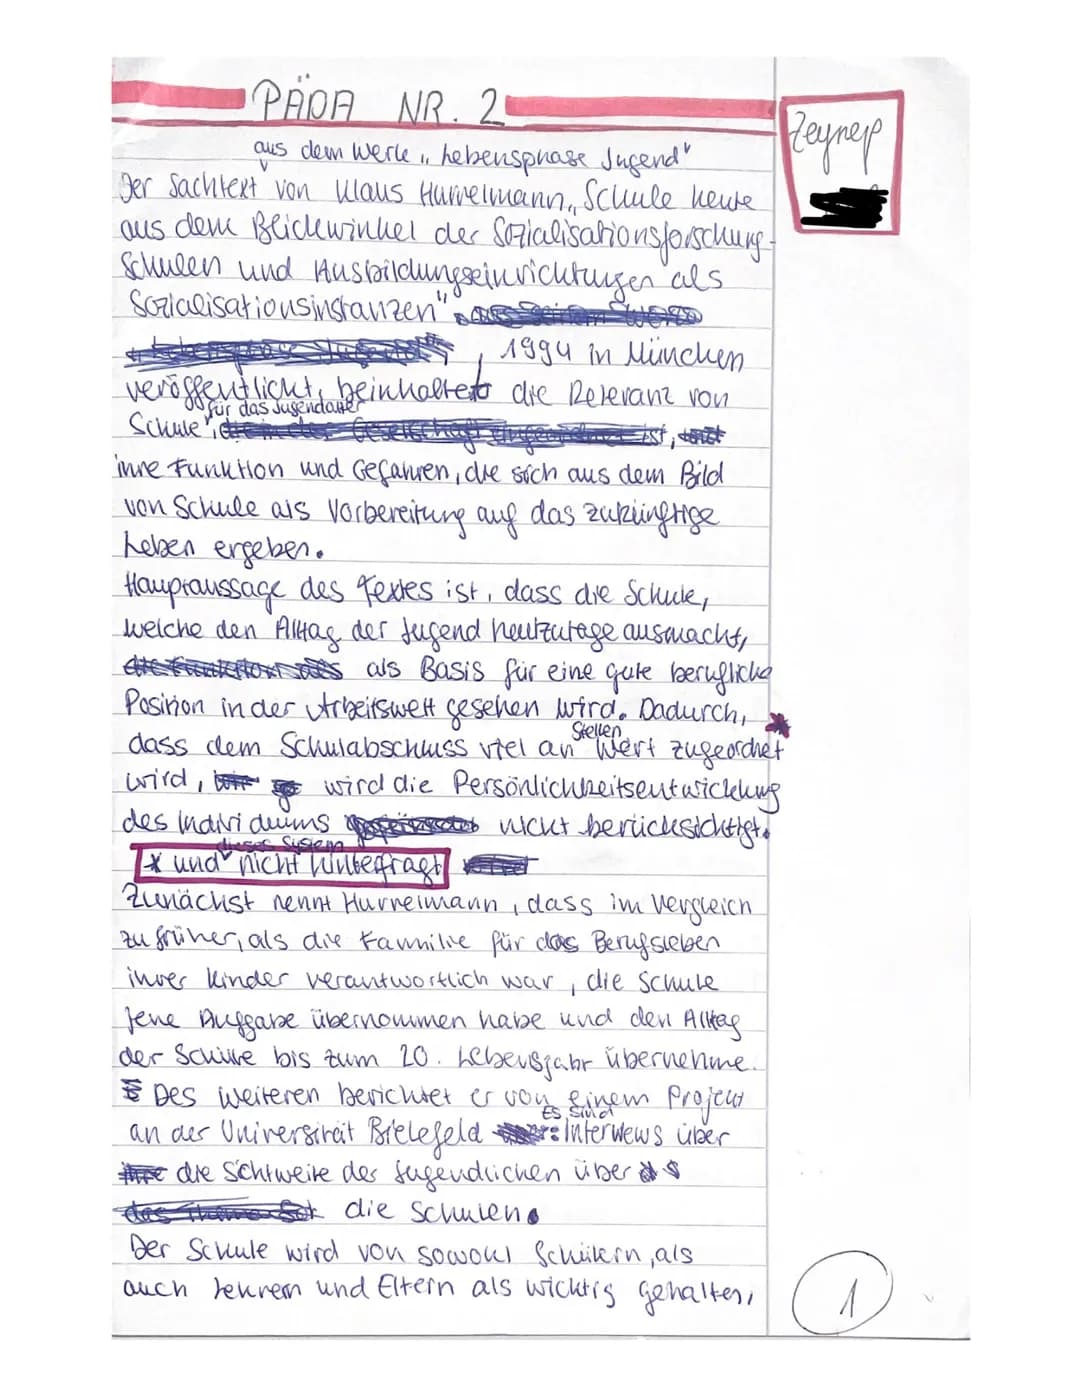 PÄDA NR. 2
Zeynep
aus dem Werk „Lebensphase Jugend"
Der Sachtext von Klaus Hurrelmann „Schule heute
aus dem Blickwinkel der Sozialisationsforschung-
Schulen und Ausbildungseinrichtungen als
Sozialisationsinstanzen"
, 1994 in München
veröffentlicht, beinhaltet die Relevanz von
für das Jugendalter
Schule,
ihre Funktion und Gefahren, die sich aus dem Bild
von Schule als Vorbereitung auf das zukünftige
Leben ergeben.
Hauptaussage des Textes ist, dass die Schule,
welche den Alltag der Jugend heutzutage ausmacht,
als Basis für eine gute berufliche
Position in der Arbeitswelt gesehen wird. Dadurch, *
Stellen
dass dem Schulabschluss viel an Wert zugeordnet
wird, wird die Persönlichkeitsentwicklung
des Individuums nicht berücksichtigt.
dieses System
* und nicht hinterfragt
Zunächst nennt Hurrelmann, dass im Vergleich
zu früher, als die Familie für das Berufsleben
ihrer Kinder verantwortlich war, die Schule
jene Aufgabe übernommen habe und den Alltag
der Schüler bis zum 20. Lebensjahr übernehme.
Des weiteren berichtet er von einem Projekt
Es sind
an der Universität Bielefeld : Interviews über
die Sichtweise der Jugendlichen über
die Schulen.
Der Schule wird von sowohl Schülern, als
auch Lehrern und Eltern als wichtig gehalten,
1